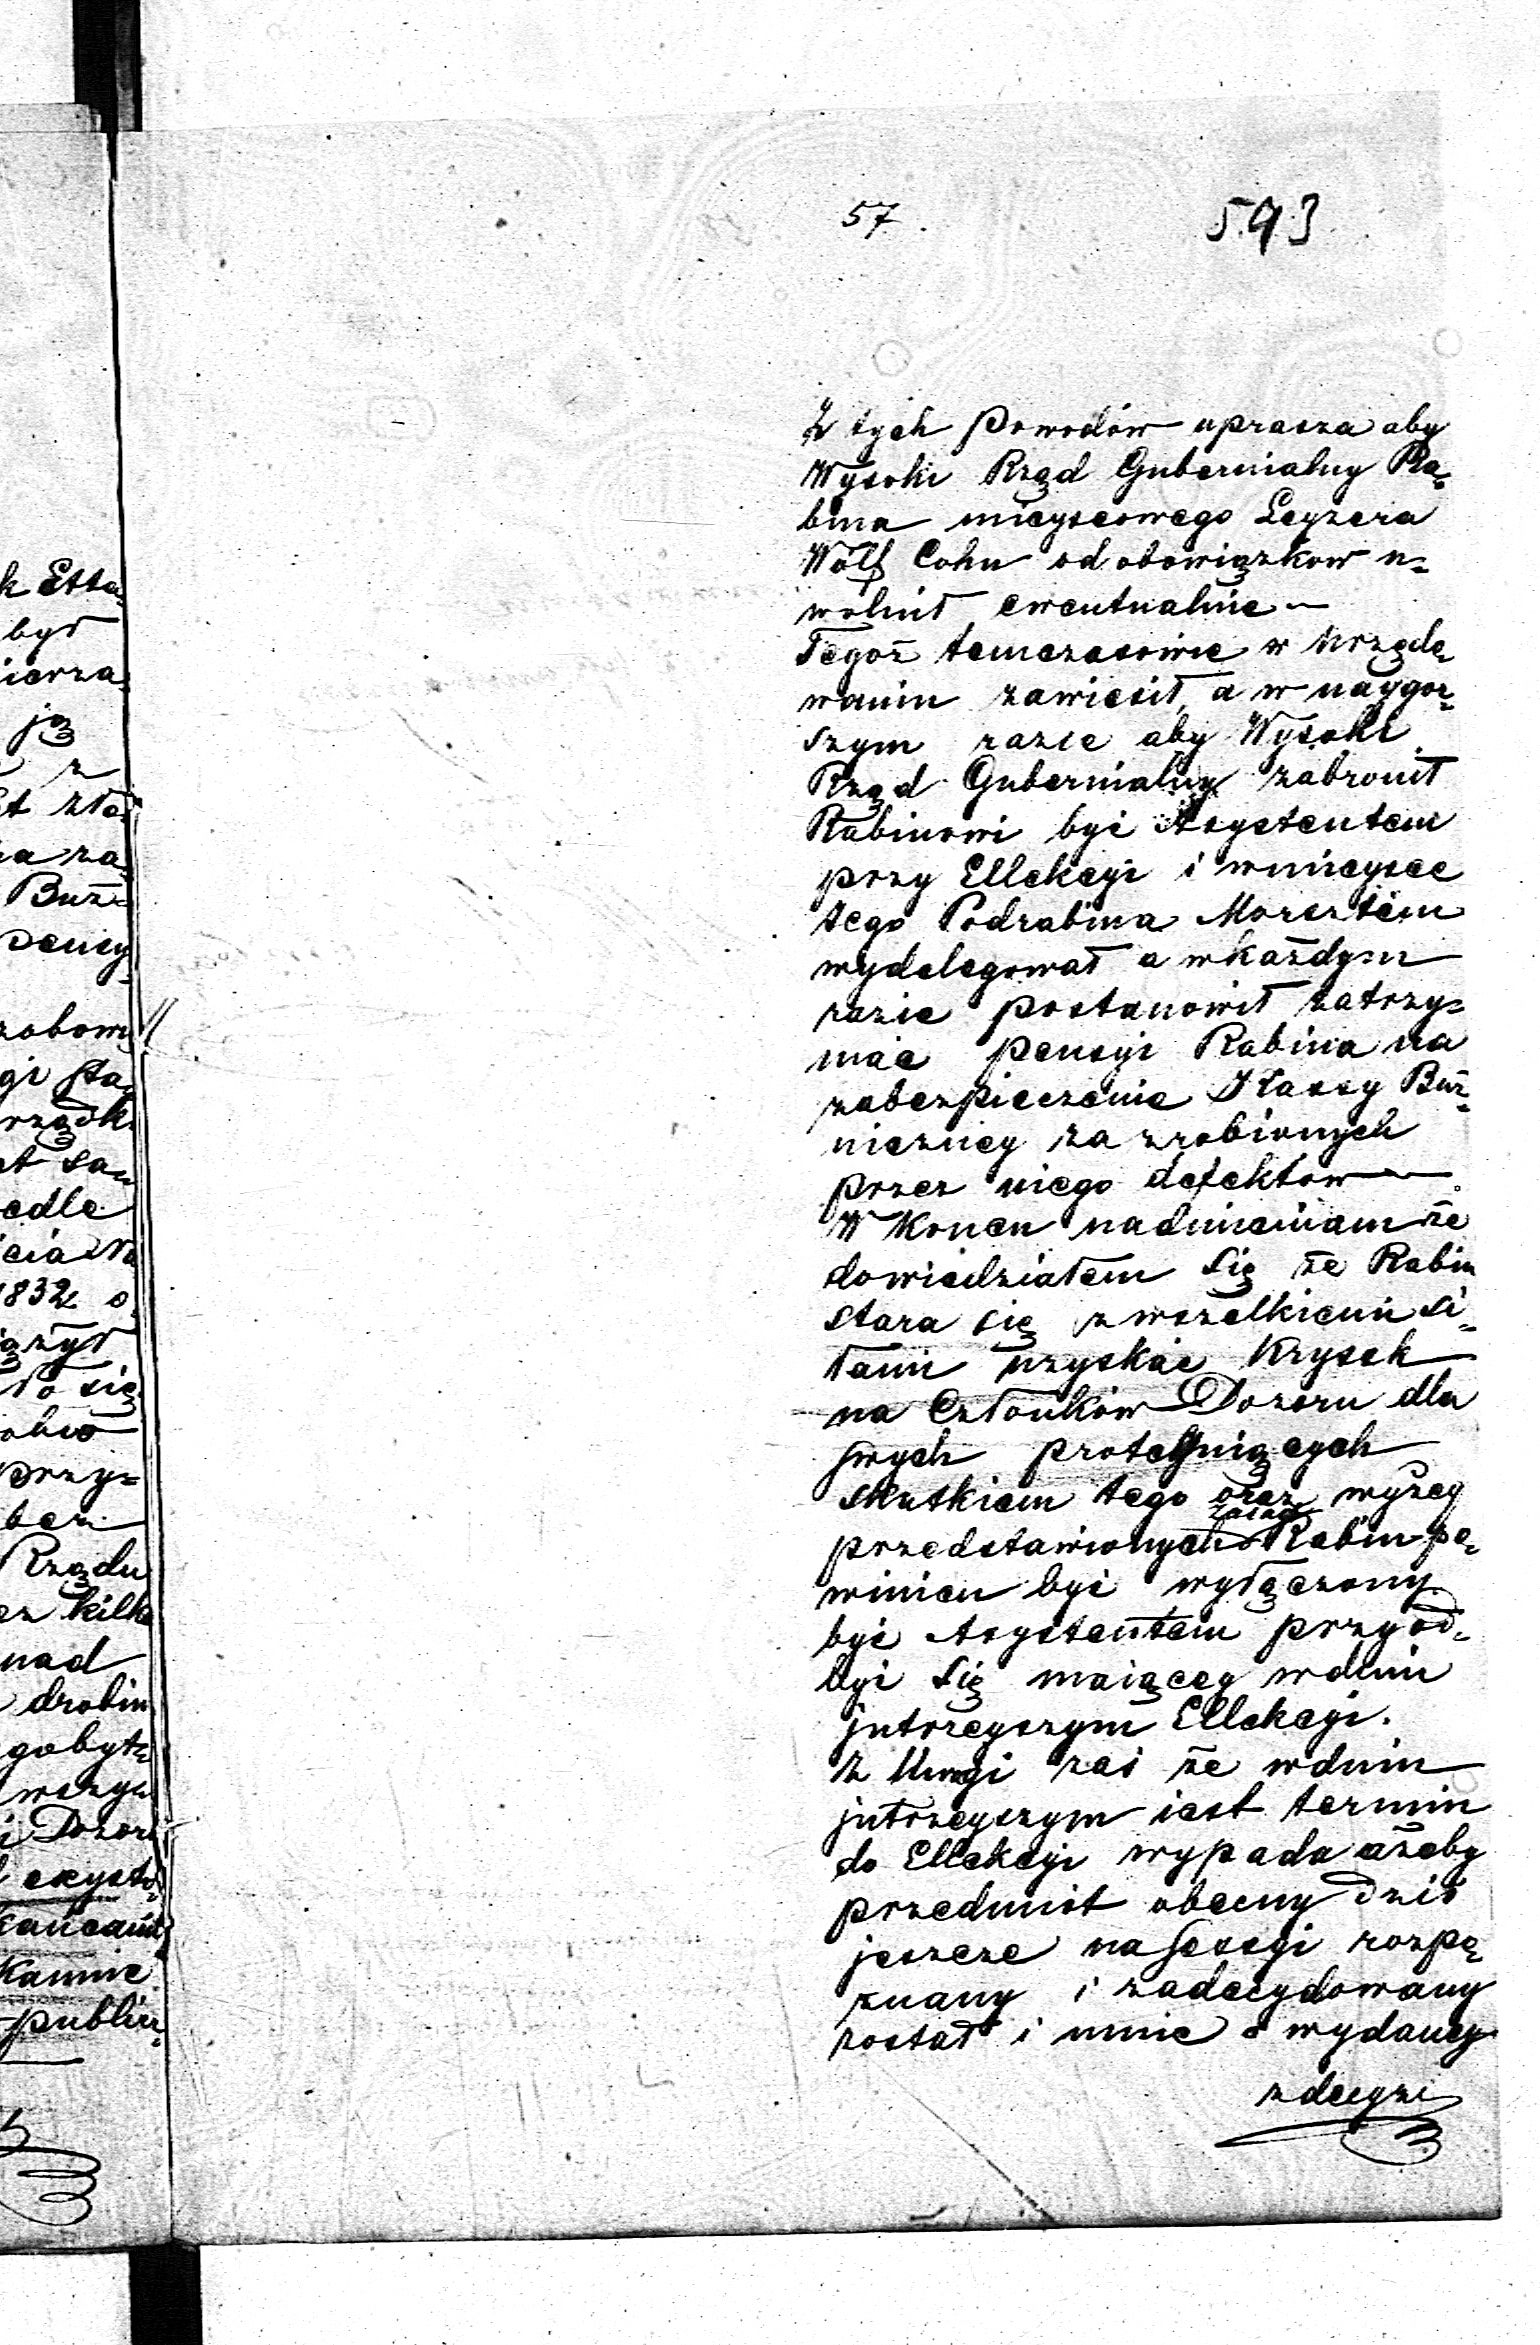 57. 593
Z tych Powodów uprasza aby
Wysoki Rząd Gubernialny Ra-
bina mieyscowego Leyzera
Wolf Cohn od obowiązkow u-
wolnił ewentualnie –
Tegoż temczasowie w Urzędo-
waniu zawiesił, a w naygor-
szym razie aby Wysoki
Rząd Gubernialny zabronił
Rabinowi być Asystentem
przy Ellekcyi i wmieysce
tego Podrabina
wydelegował a wkażdym
razie postanowił zatrzy=
mać pensyi Rabina na
zabezpieczenie Kassy Buż-
niczney za zrobionych
przez niego defektow
W Koncu nadmieniam że
dowiedziałem Się że Rabin
stara się zwszelkiemi Si-
łami uzyskać Krysek
na Członków Dozoru dla
swych
skutkiem tego oraz wyżey
przedstawionych zasad Rabin po-
winien być wyłączony
być Asystentem przy od-
być Się maiącey wdniu
jutrzeyszym Ellekcyi.
Z Uwagi zaś że wdniu
jutrzeyszym iest termin
do Ellekcyi wypada ażeby
przedmiot obecny dziś
jeszcze na Sessyi rozpo-
znany i zadecydowany
został i mnie o wydaney
zdecyzi
k Etta-
był
ierza-
ją
z
et zło-
a za-
Buż-
Deney-
zobow
gi sta-
rządk
t sa-
edle
icia No
1832 o-
iążył
ło się
obio
przy=
bez
Rządu
ez kilka
nad
drobin
gobyte
wszyw
i Dozor
exysto-
Kamie
publicz-